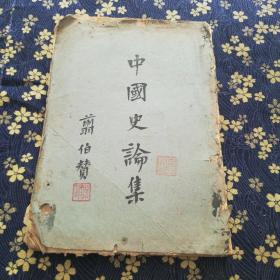 中國史論集
翦伯贊